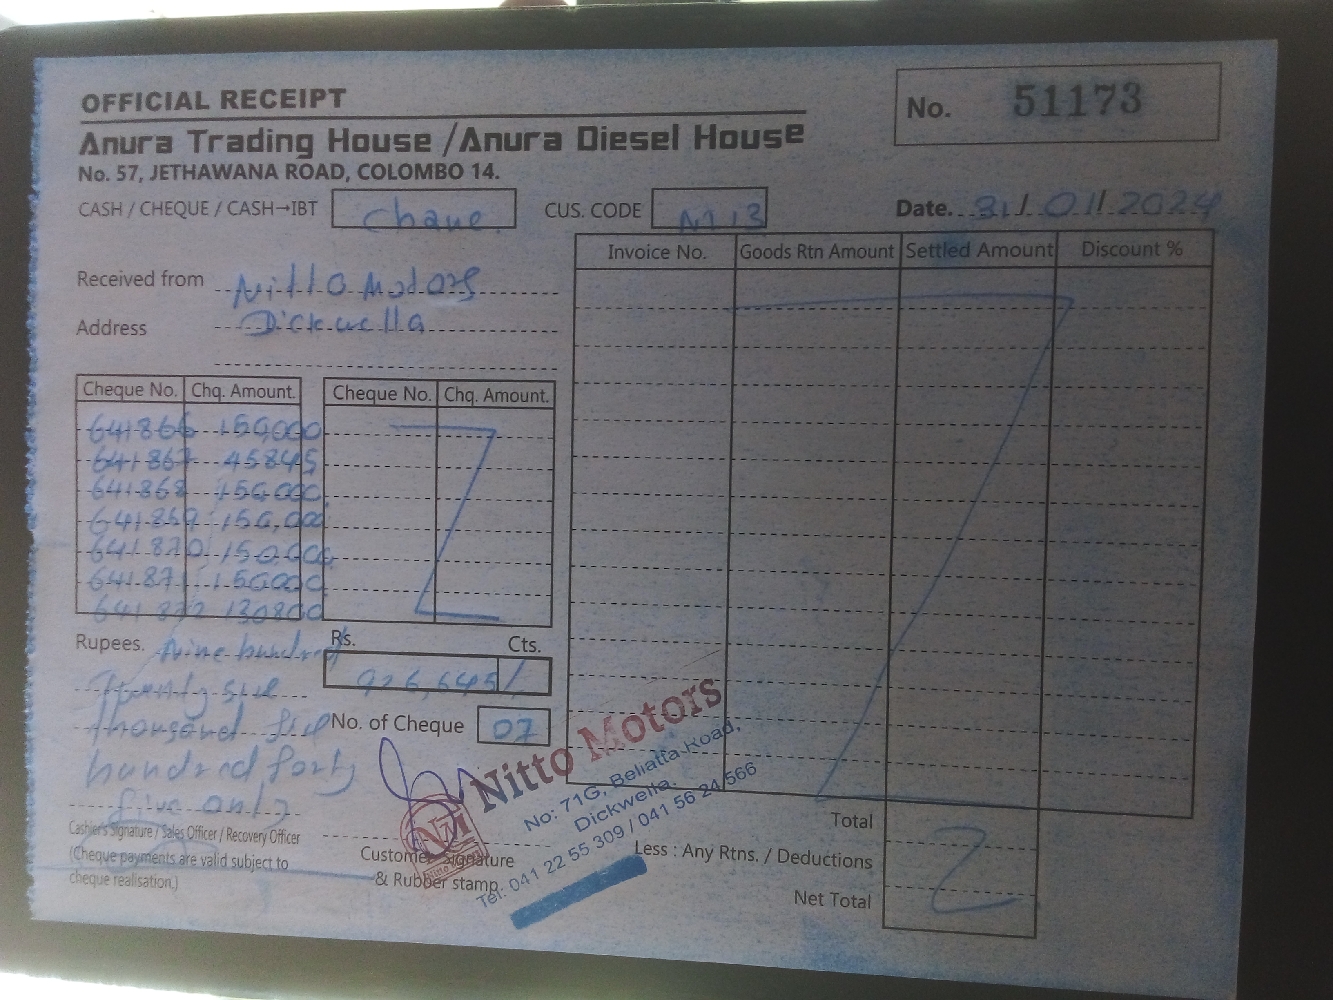 OFFICIAL RECEIPT
No. 51173
Anura Trading House / Anura Diesel House
No. 57, JETHAWANA ROAD, COLOMBO 14.
CASH / CHEQUE / CASH→IBT
CUS. CODE
Date. 31/01/2024
Received from Nitto Motors
Address Dickwella
Invoice No. Goods Rtn Amount Settled Amount Discount %
Cheque No. Chq. Amount. Cheque No. Chq. Amount.
641866 150,000
641867 45845
641868 150,000
641869 150,000
641870 150,000
641871 150000
641872 130800
Rs. Cts.
926,645/
Rupees. Nine hundred
Twenty six
thousand six
hundred forty
five only
No. of Cheque 07
Nitto Motors
No: 71G, Beliatta Road,
Dickwella.
Tel: 041 22 55 309 / 041 56 24 566
Cashier's Signature / Sales Officer / Recovery Officer
(Cheque payments are valid subject to
cheque realisation.)
Customer Signature
& Rubber stamp
Total
Less : Any Rtns. / Deductions
Net Total